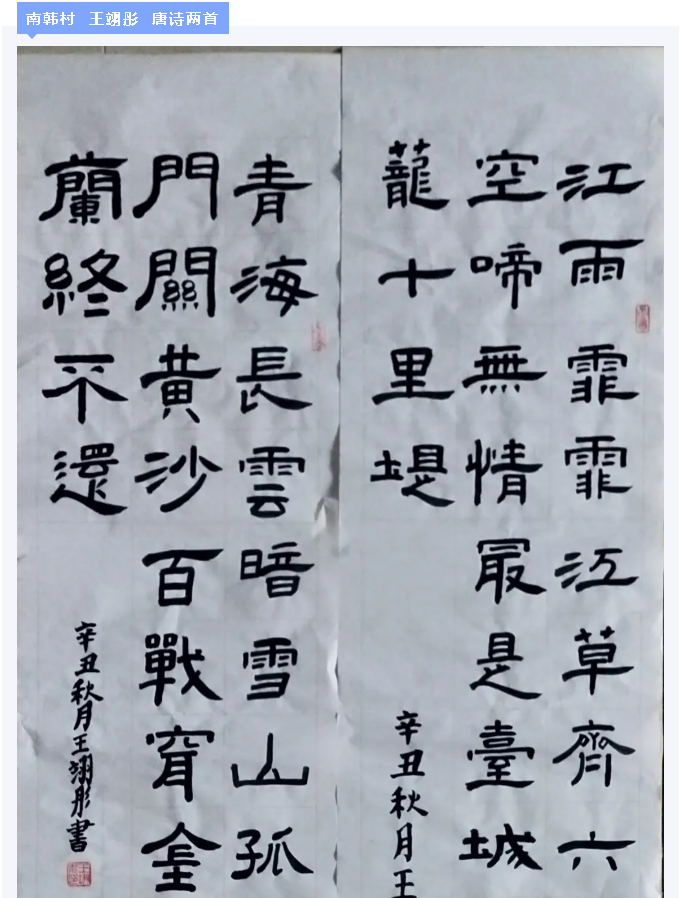 南韩村 王翊彤 唐诗两首
江雨霏霏江草齊六
空啼無情最是臺城
蘢十里堤
辛丑秋月王
青海長雲暗雪山孤
門關黃沙百戰穿金
蘭終不還
辛丑秋月王翊彤書